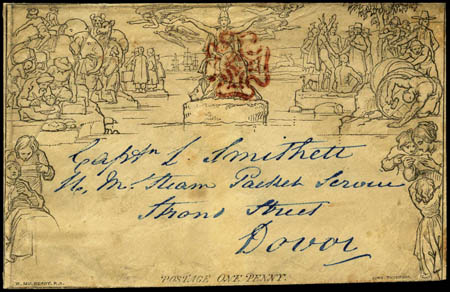 Captn L Smithett
H. M. Steam Packet Service
Strond Street
Dovor
POSTAGE ONE PENNY.
W. MULREADY, R.A.
JOHN THOMPSON